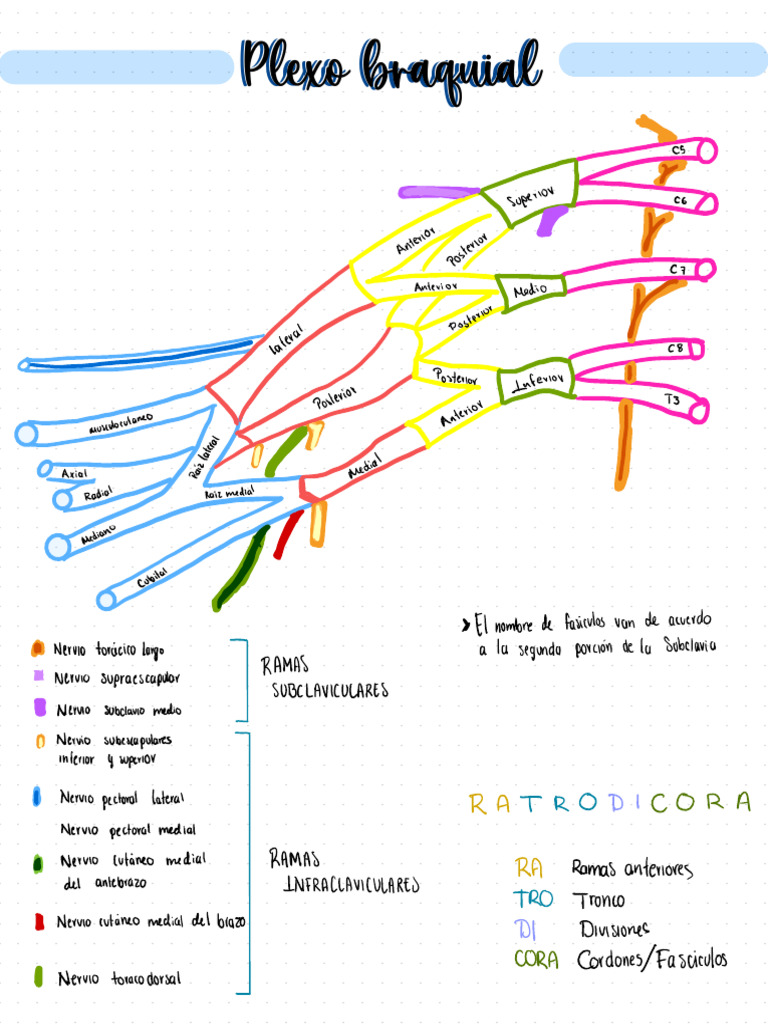 Plexo braquial
C5
C6
C7
C8
T3
Superior
Medio
Inferior
Anterior
Posterior
Anterior
Posterior
Posterior
Anterior
Lateral
Posterior
Medial
musculocutaneo
Raiz lateral
Axial
Radial
Raiz medial
Mediano
Cubital
> El nombre de fasículos van de acuerdo
a la segunda porción de la Subclavia
Nervio torácico largo
Nervio supraescapular
Nervio subclavio medio
RAMAS
SUBCLAVICULARES
Nervio subescapulares
inferior y superior
Nervio pectoral lateral
Nervio pectoral medial
Nervio cutáneo medial
del antebrazo
Nervio cutáneo medial del brazo
Nervio toracodorsal
RAMAS
INFRACLAVICULARES
RATRODICORA
RA Ramas anteriores
TRO Tronco
DI Divisiones
CORA Cordones/Fasciculos